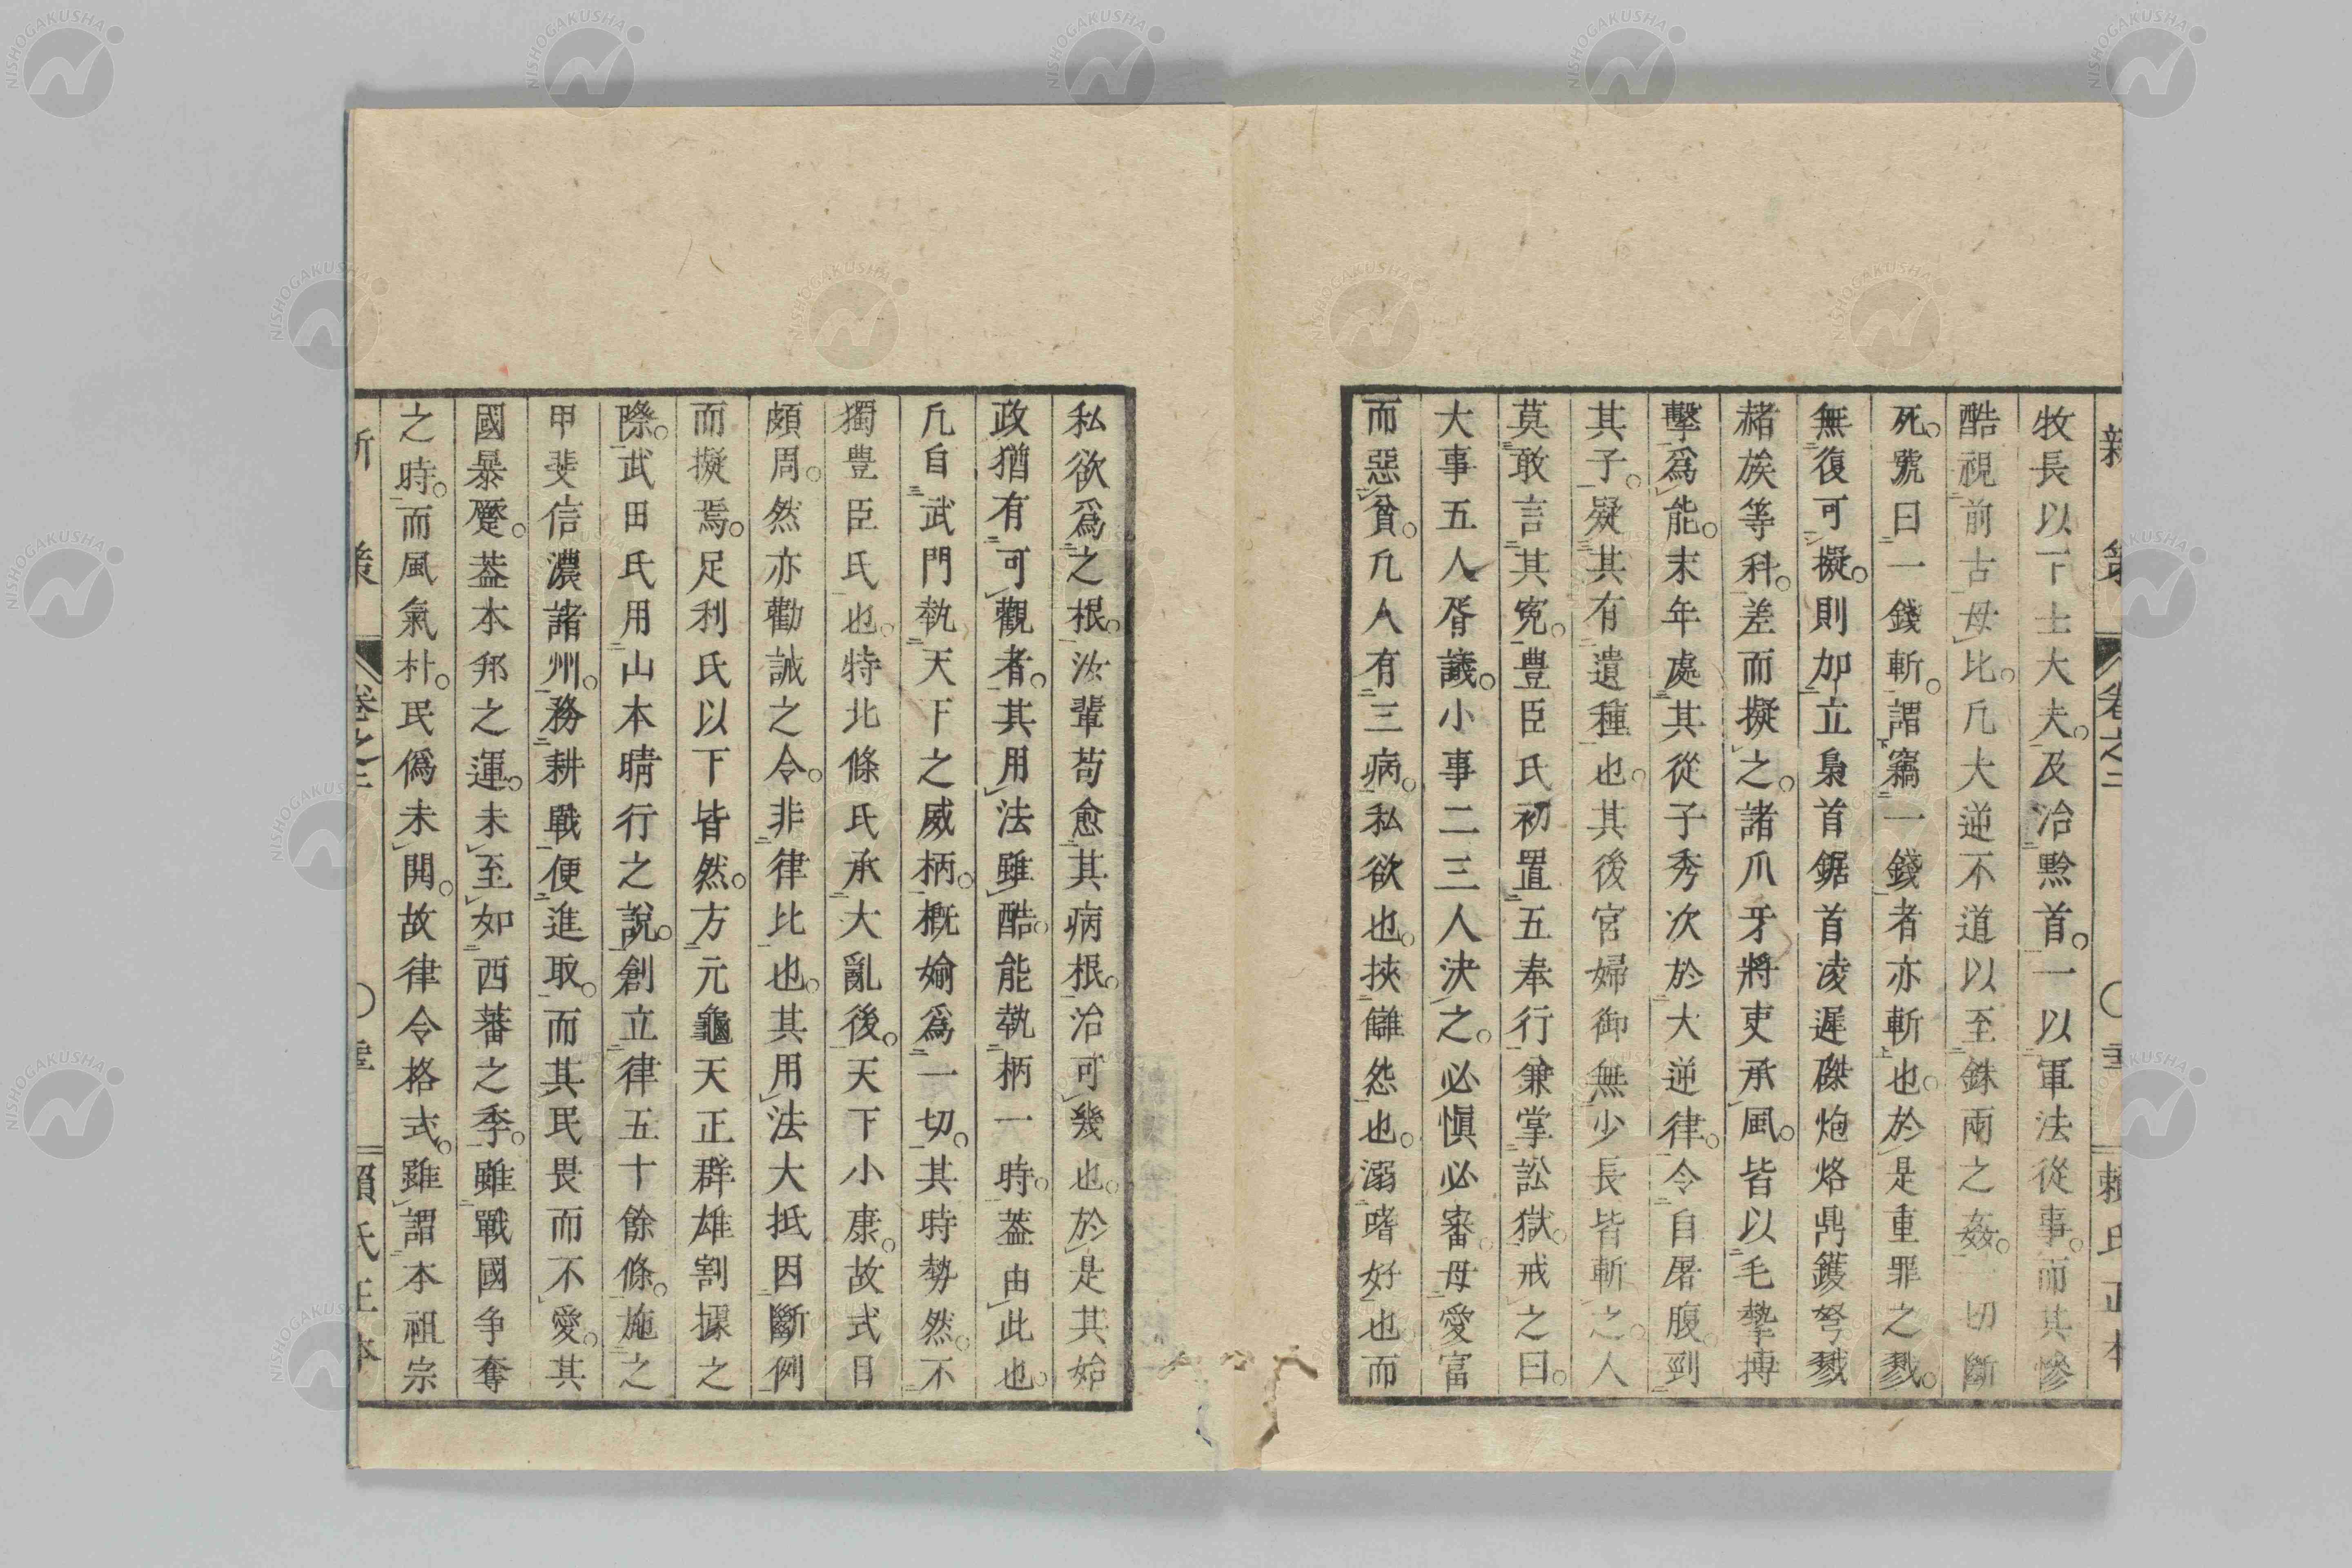 牧長以下士大夫。及治黔首。一以軍法從事。而其慘
酷視前古毋比。凢大逆不道以至銖兩之姦。一切斷
死。號曰一錢斬。謂竊一錢者亦斬也。於是重罪之戮。
無復可擬。則加立梟首鋸首凌遲磔炮烙鼎鑊弩戮
赭族等科。差而擬之。諸爪牙將吏承風。皆以毛摯搏
擊爲能。末年處其從子秀次於大逆律。令自屠腹。到
其子。疑其有遺種也。其後宮婦御無少長皆斬之。人
莫敢言其寃。豐臣氏初置五奉行兼掌訟獄。戒之曰。
大事五人胥議。小事二三人決之。必愼必審。毋愛富
而惡貧。凢人有三病。私欲也。挾讎怨也。溺嗜好也而
私欲爲之根。汝輩苟愈其病根。治可幾也。於是其始
政猶有可觀者。其用法雖酷。能執柄一時。葢由此也。
凢自武門執天下之威柄。概媮爲一切。其時勢然。不
獨豊臣氏也。特北條氏承大亂後。天下小康。故式目
頗周。然亦勸誡之令。非律比也。其用法大抵因斷例
而擬焉。足利氏以下皆然。方元龜天正群雄割據之
際。武田氏用山本晴行之說。創立律五十餘條。施之
甲斐信濃諸州。務耕戰便進取。而其民畏而不愛。其
國暴蹷。葢本邦之運。未至如西蕃之季。雖戰國爭奪
之時。而風氣朴。民僞未開。故律令格式。雖謂本祖宗